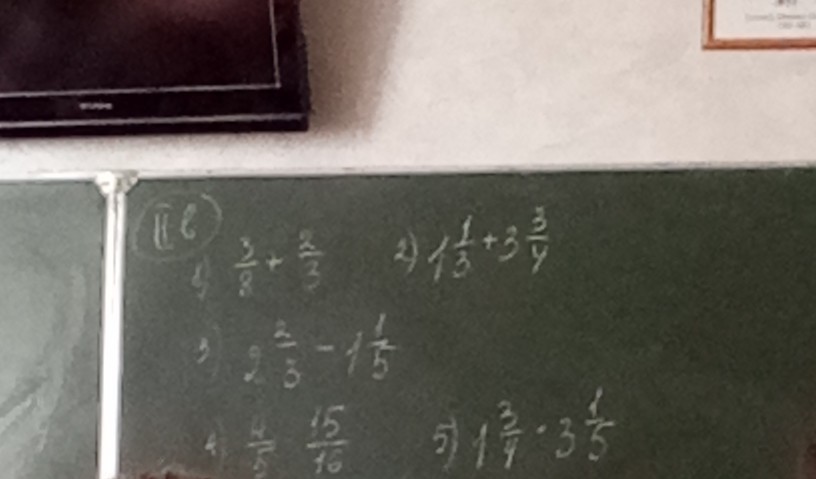 II в
1) 3/8 + 2/3 2) 1 1/3 + 3 3/4
3) 2 2/3 - 1 1/5
4) 4/5 15/16 5) 1 3/4 · 3 1/5